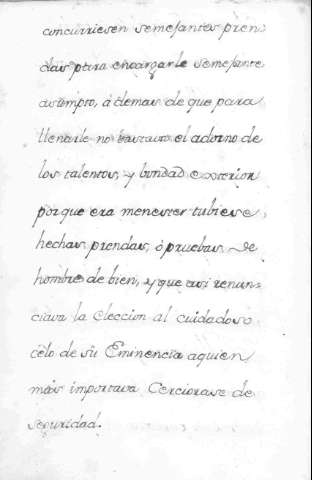 concurriesen semejantes pren-
das para encargarle semejante
asumpto, á demas de que para
llenarle no bastava el adorno de
los talentos, y bondad exterior
porque era menester tubiese,
hechas prendas, ó pruebas de
hombre de bien, y que asi renun-
ciava la eleccion al cuidadoso
célo de sú Eminencia aquien
más importava Cerciorase de
seguridad.